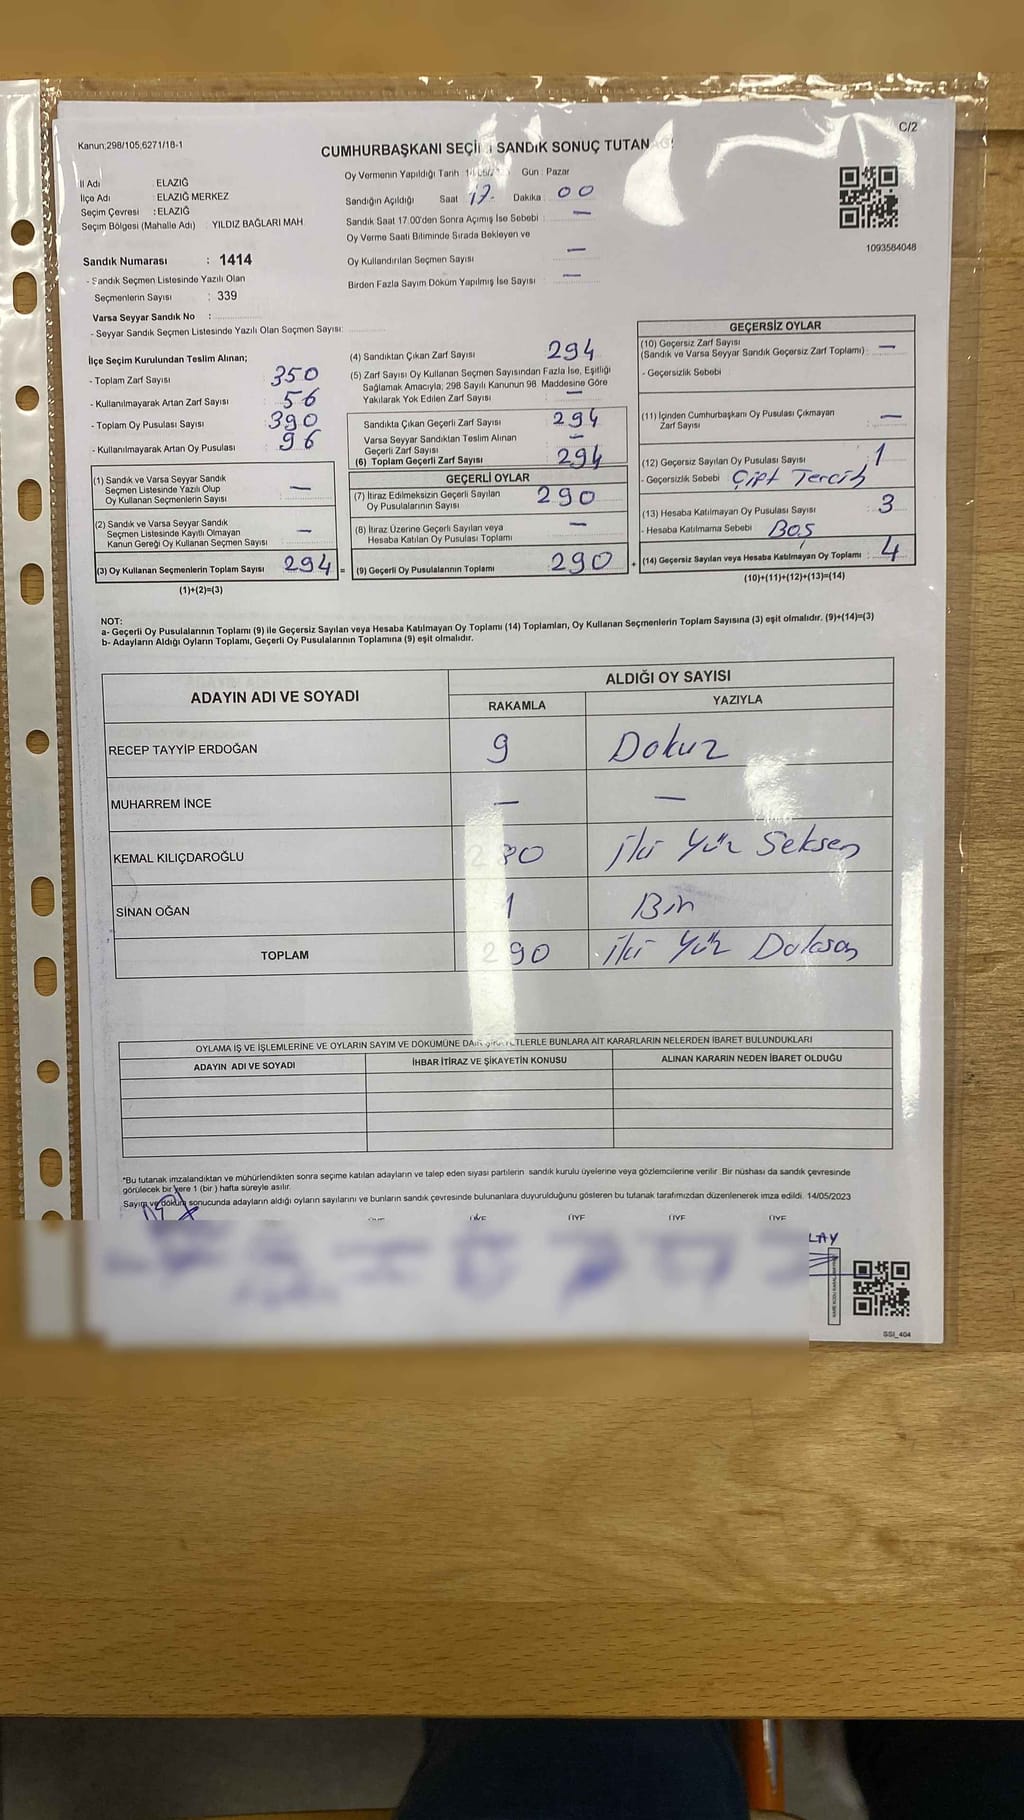 C/2
Kanun;298/105,6271/18-1
CUMHURBAŞKANI SEÇİ SANDIK SONUÇ TUTAN
İl Adı : ELAZIĞ
İlçe Adı : ELAZIĞ MERKEZ
Seçim Çevresi : ELAZIĞ
Seçim Bölgesi (Mahalle Adı) : YILDIZ BAĞLARI MAH.
Sandık Numarası : 1414
- Sandık Seçmen Listesinde Yazılı Olan
Seçmenlerin Sayısı : 339
Varsa Seyyar Sandık No :
- Seyyar Sandık Seçmen Listesinde Yazılı Olan Seçmen Sayısı:
Oy Vermenin Yapıldığı Tarih Gün : Pazar
Sandığın Açıldığı Saat 17- Dakika 00
Sandık Saat 17.00'den Sonra Açımış İse Sebebi : —
Oy Verme Saati Bitiminde Sırada Bekleyen ve
Oy Kullandırılan Seçmen Sayısı : —
Birden Fazla Sayım Döküm Yapılmış İse Sayısı : —
1093584048
İlçe Seçim Kurulundan Teslim Alınan;
- Toplam Zarf Sayısı 350
- Kullanılmayarak Artan Zarf Sayısı : 56
- Toplam Oy Pusulası Sayısı 390
- Kullanılmayarak Artan Oy Pusulası : 96
(1) Sandık ve Varsa Seyyar Sandık
Seçmen Listesinde Yazılı Olup
Oy Kullanan Seçmenlerin Sayısı —
(2) Sandık ve Varsa Seyyar Sandık
Seçmen Listesinde Kayıtlı Olmayan
Kanun Gereği Oy Kullanan Seçmen Sayısı : —
(3) Oy Kullanan Seçmenlerin Toplam Sayısı 294 =
(1)+(2)=(3)
(4) Sandıktan Çıkan Zarf Sayısı 294
(5) Zarf Sayısı Oy Kullanan Seçmen Sayısından Fazla İse, Eşitliği
Sağlamak Amacıyla; 298 Sayılı Kanunun 98. Maddesine Göre
Yakılarak Yok Edilen Zarf Sayısı : —
Sandıkta Çıkan Geçerli Zarf Sayısı : 294
Varsa Seyyar Sandıktan Teslim Alınan
Geçerli Zarf Sayısı : —
(6) Toplam Geçerli Zarf Sayısı : 294
GEÇERLİ OYLAR
(7) İtiraz Edilmeksizin Geçerli Sayılan
Oy Pusulalarının Sayısı : 290
(8) İtiraz Üzerine Geçerli Sayılan veya
Hesaba Katılan Oy Pusulası Toplamı : —
(9) Geçerli Oy Pusulalarının Toplamı : 290 +
GEÇERSİZ OYLAR
(10) Geçersiz Zarf Sayısı
(Sandık ve Varsa Seyyar Sandık Geçersiz Zarf Toplamı) : —
- Geçersizlik Sebebi :
(11) İçinden Cumhurbaşkanı Oy Pusulası Çıkmayan
Zarf Sayısı : —
(12) Geçersiz Sayılan Oy Pusulası Sayısı : 1
- Geçersizlik Sebebi Çift Tercih
(13) Hesaba Katılmayan Oy Pusulası Sayısı : 3
- Hesaba Katılmama Sebebi : Boş
(14) Geçersiz Sayılan veya Hesaba Katılmayan Oy Toplamı : 4
(10)+(11)+(12)+(13)=(14)
NOT:
a- Geçerli Oy Pusulalarının Toplamı (9) ile Geçersiz Sayılan veya Hesaba Katılmayan Oy Toplamı (14) Toplamları, Oy Kullanan Seçmenlerin Toplam Sayısına (3) eşit olmalıdır. (9)+(14)=(3)
b- Adayların Aldığı Oyların Toplamı, Geçerli Oy Pusulalarının Toplamına (9) eşit olmalıdır.
ADAYIN ADI VE SOYADI ALDIĞI OY SAYISI
RAKAMLA YAZIYLA
RECEP TAYYİP ERDOĞAN 9 Dokuz
MUHARREM İNCE — —
KEMAL KILIÇDAROĞLU 280 İki Yüz Seksen
SİNAN OĞAN 1 Bir
TOPLAM 290 İki Yüz Doksan
OYLAMA İŞ VE İŞLEMLERİNE VE OYLARIN SAYIM VE DÖKÜMÜNE DAİR ŞİKAYETLERLE BUNLARA AİT KARARLARIN NELERDEN İBARET BULUNDUKLARI
ADAYIN ADI VE SOYADI İHBAR İTİRAZ VE ŞİKAYETİN KONUSU ALINAN KARARIN NEDEN İBARET OLDUĞU
*Bu tutanak imzalandıktan ve mühürlendikten sonra seçime katılan adayların ve talep eden siyasi partilerin sandık kurulu üyelerine veya gözlemcilerine verilir. Bir nüshası da sandık çevresinde
görülecek bir yere 1 (bir ) hafta süreyle asılır.
Sayım ve döküm sonucunda adayların aldığı oyların sayılarını ve bunların sandık çevresinde bulunanlara duyurulduğunu gösteren bu tutanak tarafımızdan düzenlenerek imza edildi. 14/05/2023
ÜYE ÜYE ÜYE ÜYE ÜYE
LAY
SSI_404